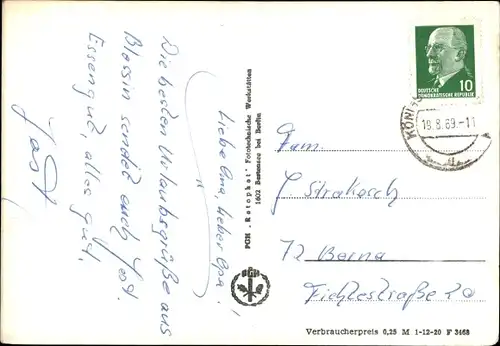 Liebe Oma, lieber Opa!
Die besten Urlaubsgrüße aus
Blossin sendet euch Jost.
Essen gut, alles gut.
Jost
PGH „Rotophot" Fototechnische Werkstätten
1602 Bestensee bei Berlin
PGH
10
DEUTSCHE
DEMOKRATISCHE REPUBLIK
18.8.69-11
Fam.
J. Strakosch
72 Borna
Fichtestraße 20
Verbraucherpreis 0,25 M 1-12-20 F 3468